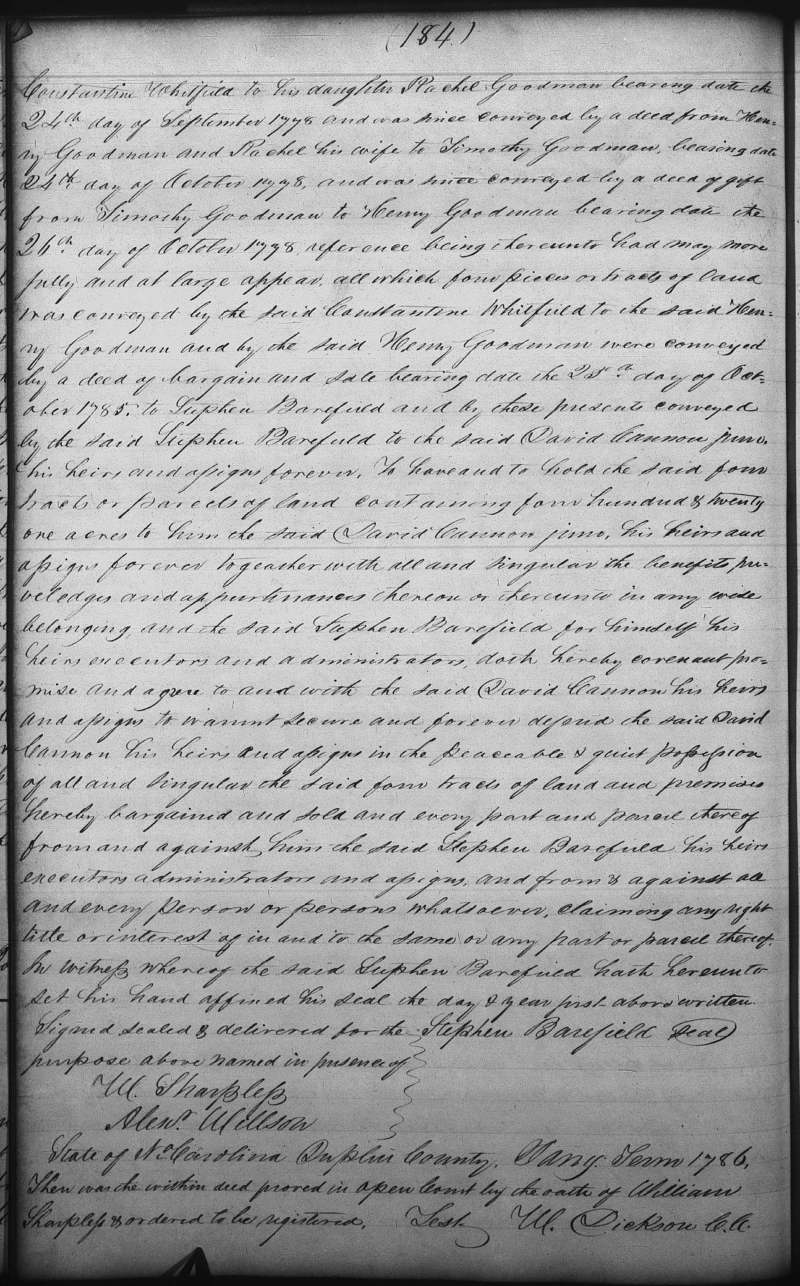 (184)
Constantine Whitfield to his daughter Rachel Goodman bearing date the
24th day of September 1778 and was since conveyed by a deed from Hen=
ry Goodman and Rachel his wife to Timothy Goodman, bearing date
24th day of October 1778, and was since conveyed by a deed of gift
from Timothy Goodman to Henry Goodman bearing date the
26th day of October 1778 reference being thereunto had may more
fully and at large appear, all which four pieces or tracts of land
was conveyed by the said Constantine Whitfield to the said Hen=
ry Goodman and by the said Henry Goodman were conveyed
by a deed of bargain and sale bearing date the 25th day of Oct=
ober 1785, to Stephen Barefield and by these presents conveyed
by the said Stephen Barefield to the said David Cannon junr.
his heirs and assigns forever, To have and to hold the said four
tracts or parcels of land containing four hundred & twenty
one acres to him the said David Cannon junr, his heirs and
assigns forever togeather with all and singular the benefits pri=
veledges and appurtinances thereon or thereunto in any wise
belonging, and the said Stephen Barefield for himself his
heirs executors and administrators, doth hereby covenant pro=
mise and agree to and with the said David Cannon his heirs
and assigns to warrant secure and forever defend the said David
Cannon his heirs and assigns in the peaceable & quiet possession
of all and singular the said four tracts of land and premises
hereby bargained and sold and every part and parcel thereof
from and against him the said Stephen Barefield his heirs
executors administrators and assigns, and from & against all
and every person or persons whatsoever, claiming any right
title or interest of in and to the same or any part or parcel thereof.
In witness whereof the said Stephen Barefield hath hereunto
set his hand affixed his seal the day & year first above written
Signed sealed & delivered for the Stephen Barefield (seal)
purpose above named in presence of
W. Sharpless
Alexr. Willson
State of No. Carolina Duplin County. Jany. Term 1786,
Then was the within deed proved in open Court by the oath of William
Sharpless & ordered to be registered, Test W. Dickson C.C.